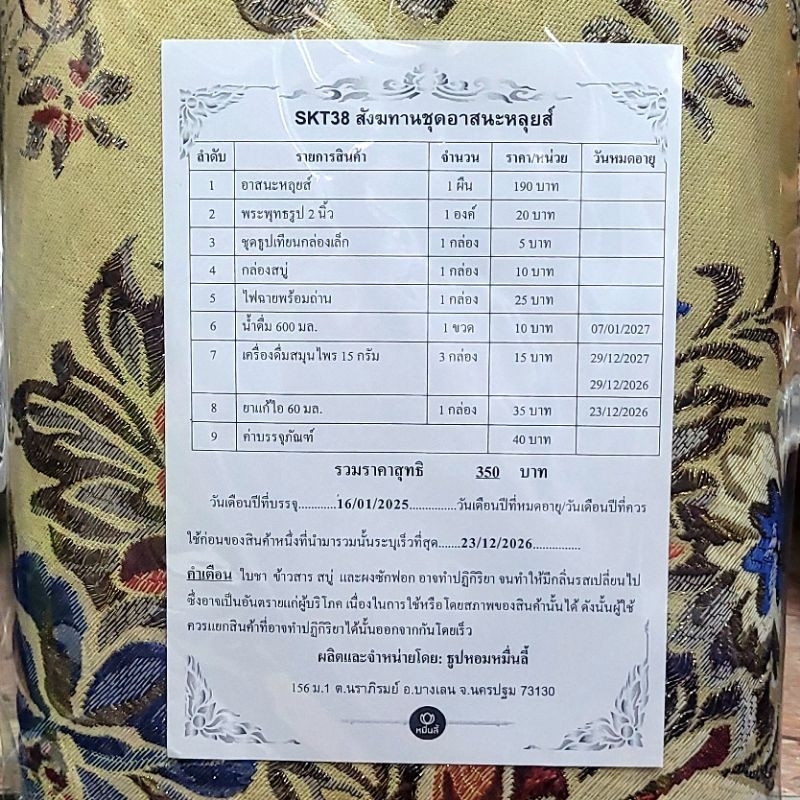 SKT38 สังฆทานชุดอาสนะหลุยส์
ลำดับ รายการสินค้า จำนวน ราคา/หน่วย วันหมดอายุ
1 อาสนะหลุยส์ 1 ผืน 190 บาท
2 พระพุทธรูป 2 นิ้ว 1 องค์ 20 บาท
3 ชุดธูปเทียนกล่องเล็ก 1 กล่อง 5 บาท
4 กล่องสบู่ 1 กล่อง 10 บาท
5 ไฟฉายพร้อมถ่าน 1 กล่อง 25 บาท
6 น้ำดื่ม 600 มล. 1 ขวด 10 บาท 07/01/2027
7 เครื่องดื่มสมุนไพร 15 กรัม 3 กล่อง 15 บาท 29/12/2027
29/12/2026
8 ยาแก้ไอ 60 มล. 1 กล่อง 35 บาท 23/12/2026
9 ค่าบรรจุภัณฑ์ 40 บาท
รวมราคาสุทธิ 350 บาท
วันเดือนปีที่บรรจุ...........16/01/2025..............วันเดือนปีที่หมดอายุ/วันเดือนปีที่ควร
ใช้ก่อนของสินค้าหนึ่งที่นำมารวมนั้นระบุเร็วที่สุด.......23/12/2026..............
คำเตือน ใบชา ข้าวสาร สบู่ และผงซักฟอก อาจทำปฏิกิริยา จนทำให้มีกลิ่นรสเปลี่ยนไป
ซึ่งอาจเป็นอันตรายแก่ผู้บริโภค เนื่องในการใช้หรือโดยสภาพของสินค้านั้นได้ ดังนั้นผู้ใช้
ควรแยกสินค้าที่อาจทำปฏิกิริยาได้นั้นออกจากกันโดยเร็ว
ผลิตและจำหน่ายโดย: ธูปหอมหมื่นลี้
156 ม.1 ต.นราภิรมย์ อ.บางเลน จ.นครปฐม 73130
หมื่นลี้